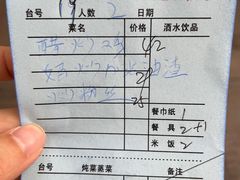 台号 19 人数 2 日期
菜名 价格 酒水饮品
醋炒鸡 42
炒油渣
炒粉丝 25
餐巾纸 1
餐具 2+1
米饭 2
台号 炖菜蒸菜 备注